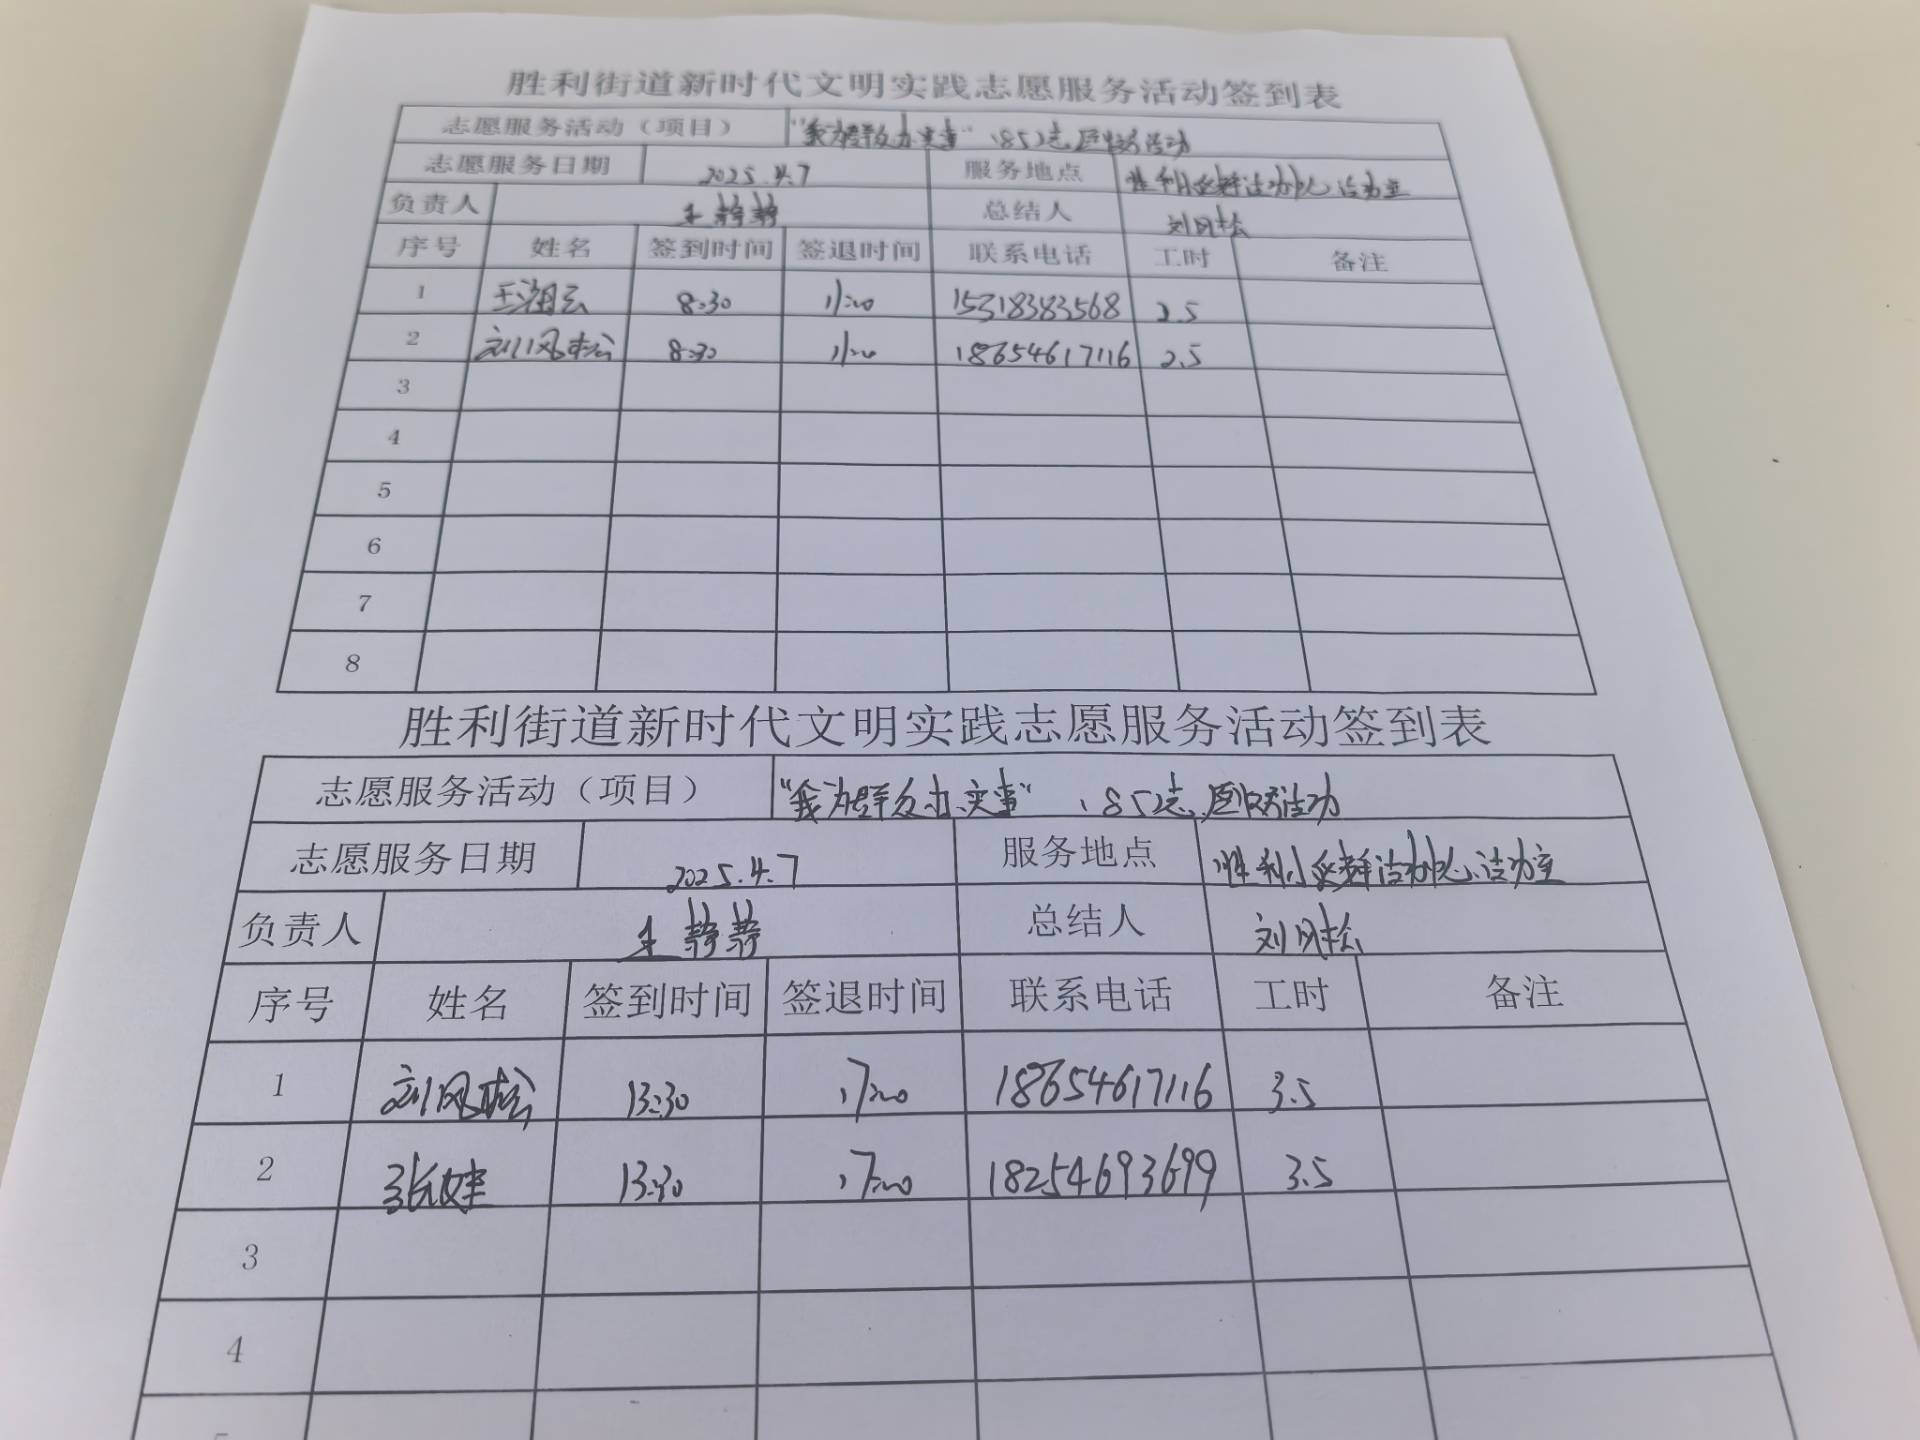 胜利街道新时代文明实践志愿服务活动签到表
志愿服务活动（项目） "我为群众办实事" 1852志愿服务活动
志愿服务日期 2025.4.7 服务地点 胜利小区党群活动中心活动室
负责人 王静静 总结人 刘风松
序号 姓名 签到时间 签退时间 联系电话 工时 备注
1 王湘云 8:30 11:00 15318383568 2.5
2 刘风松 8:30 11:00 18654617116 2.5
3
4
5
6
7
8
胜利街道新时代文明实践志愿服务活动签到表
志愿服务活动（项目） "我为群众办实事" 1852志愿服务活动
志愿服务日期 2025.4.7 服务地点 胜利小区党群活动中心活动室
负责人 王静静 总结人 刘风松
序号 姓名 签到时间 签退时间 联系电话 工时 备注
1 刘风松 13:30 17:00 18654617116 3.5
2 张娃 13:30 17:00 18254693699 3.5
3
4